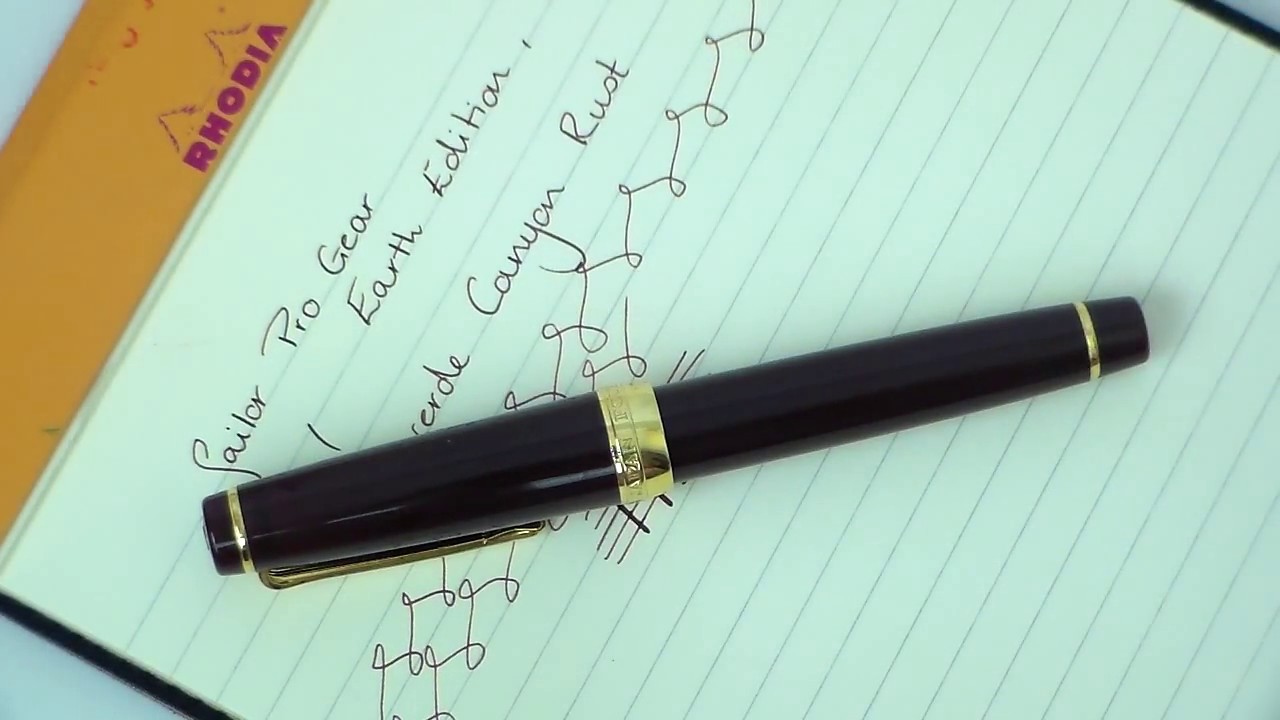 RHODIA
Sailor Pro Gear
Earth Edition,
Canyon Rust